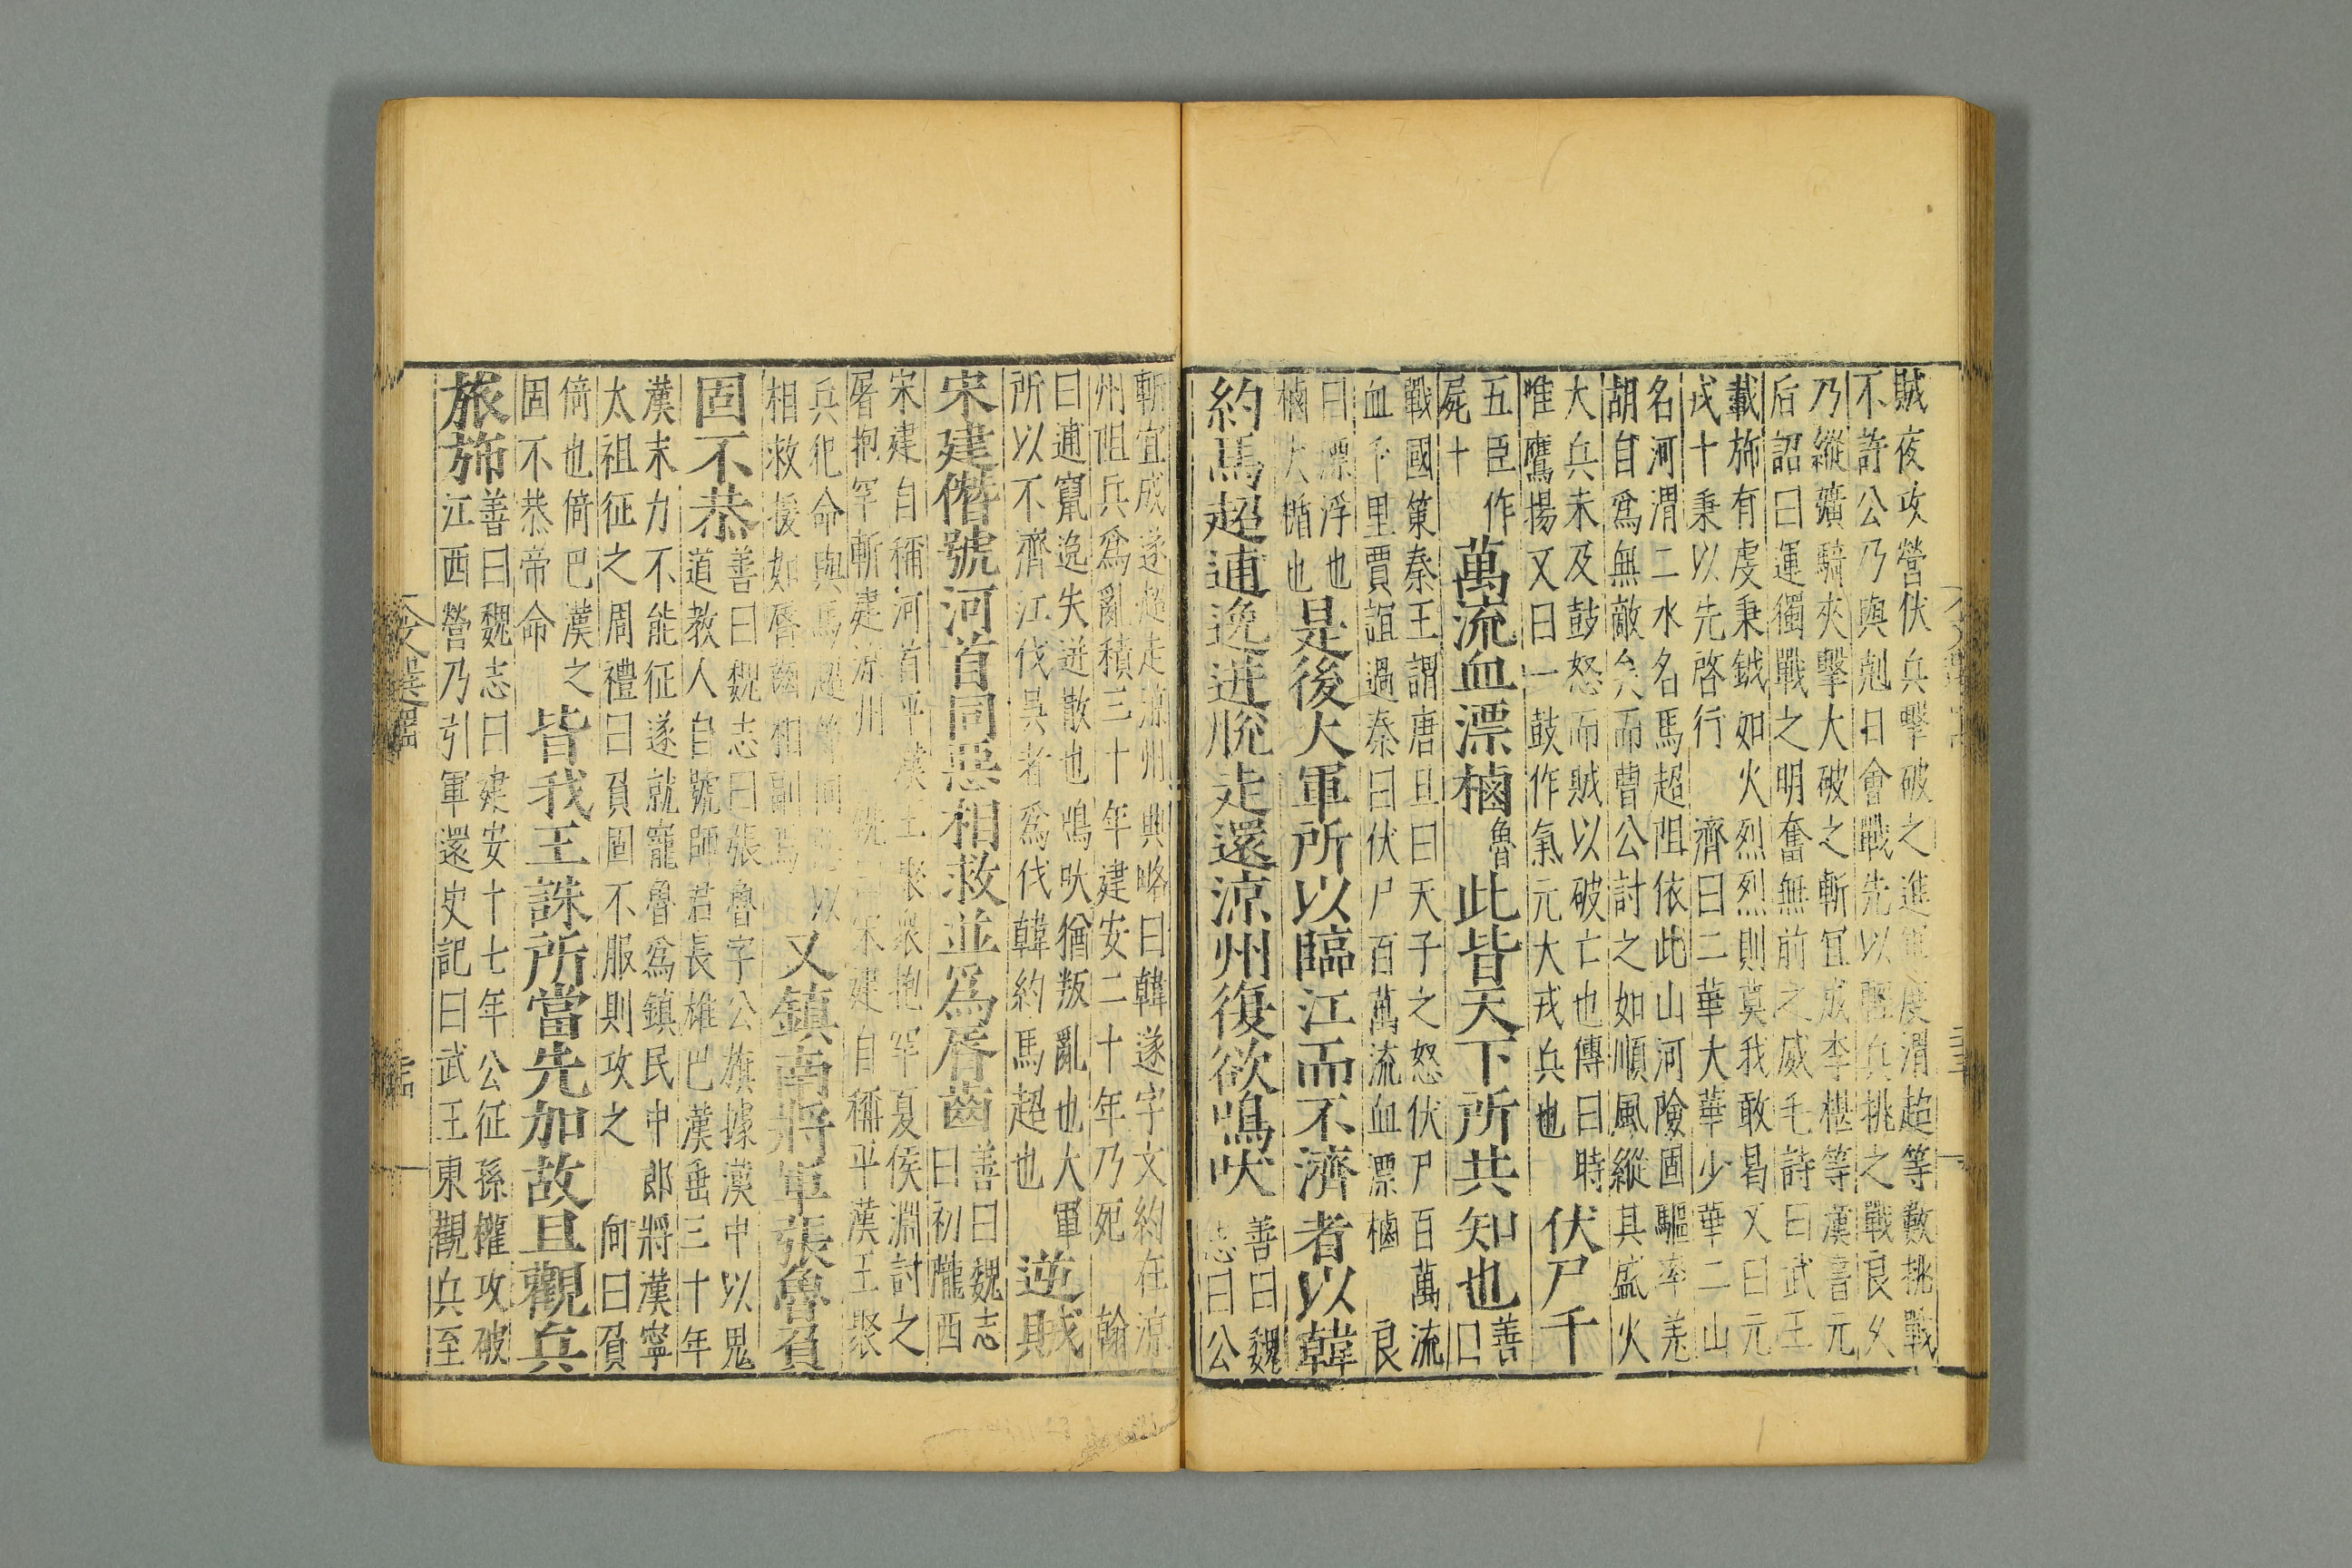 賊夜攻營伏兵擊破之進軍度渭超等數挑戰
不許公乃與剋日會戰先以輕兵挑之戰良久
乃縱獷騎夾擊大破之斬宜成李椹等漢書元
后詔曰運獨戰之明奮無前之威毛詩曰武王
載斾有虔秉鉞如火烈烈則莫我敢曷又曰元
戎十乘以先啓行 濟曰二華大華少華二山
名河渭二水名馬超阻依此山河險固驅率羌
胡自爲無敵矣而曹公討之如順風縱其盛火
大兵未及鼓怒而賊以破亡也傳曰時
唯鷹揚又曰一鼓作氣元大戎兵也
伏尸千
五臣作
屍十
萬流血漂樐
魯
此皆天下所共知也
善
曰
戰國策秦王謂唐且曰天子之怒伏尸百萬流
血千里賈誼過秦曰伏尸百萬流血漂樐 良
曰漂浮也
樐大楯也
是後大軍所以臨江而不濟者以韓
約馬超逋逸迸脫走還涼州復欲鳴吠
善曰魏
志曰公
斬宜成遂超走涼州典略曰韓遂字文約在涼
州阻兵爲亂積三十年建安二十年乃死 翰
曰逋竄逸失迸散也鳴吠猶叛亂也大軍
所以不濟江伐吳者爲伐韓約馬超也
逆賊
宋建僭號河首同惡相救並爲脣齒
善曰魏志
曰初隴西
宋建自稱河首平漢王聚衆抱罕夏侯淵討之
屠抱罕斬建涼州 銑曰宋建自稱平漢王聚
兵犯命與馬超等同惡以
相救援如脣齒相副焉
又鎮南將軍張魯負
固不恭
善曰魏志曰張魯字公旗據漢中以鬼
道教人自號師君長雄巴漢垂三十年
漢末力不能征遂就寵魯爲鎮民中郎將漢寧
太祖征之周禮曰負固不服則攻之 向曰負
倚也倚巴漢之
固不恭帝命
皆我王誅所當先加故且觀兵
旅斾
善曰魏志曰建安十七年公征孫權攻破
江西營乃引軍還史記曰武王東觀兵至